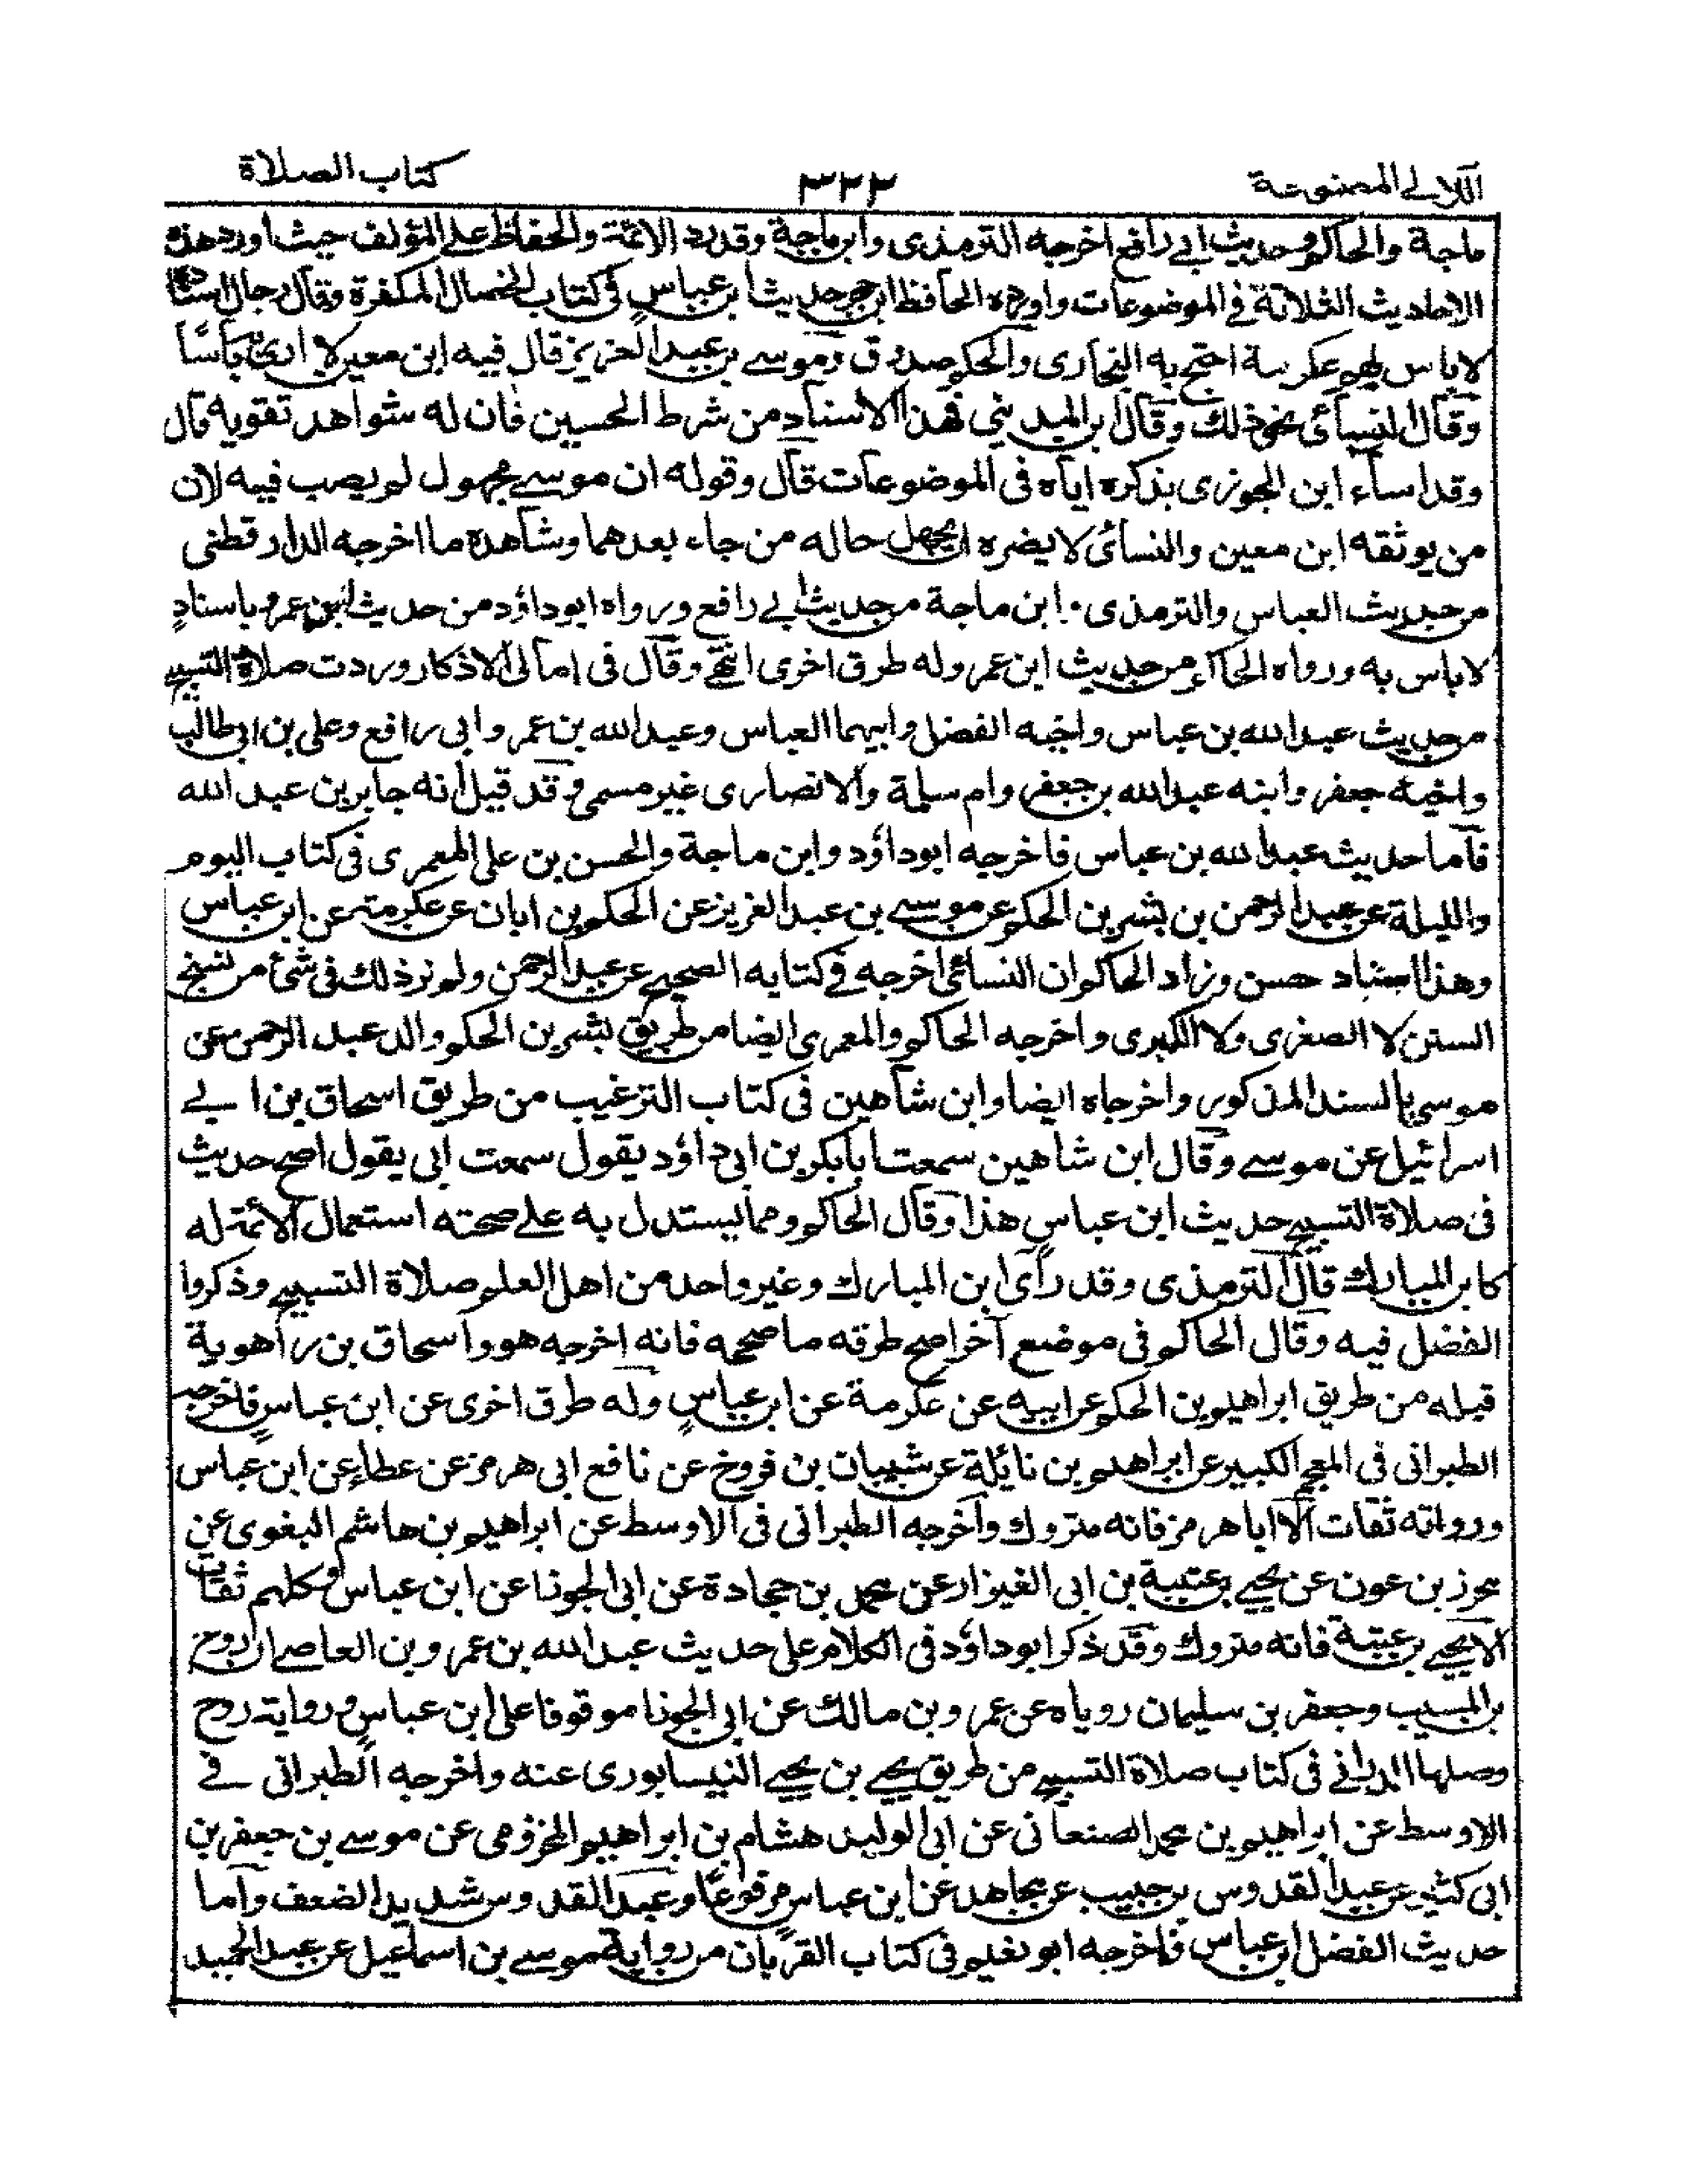 اللالى المصنوعة ٣٢٢ كتاب الصلاة
ماجة والحاكم وحديث ابى رافع اخرجه الترمذى وابن ماجة وقد رد الائمة والحفاظ على المؤلف حيث اورد هذه
الاحاديث الثلاثة فى الموضوعات واورد الحافظ ابن حجر حديث ابن عباس فى كتاب الخصال المكفرة وقال رجال اسناده
لا باس بهم عكرمة احتج به البخارى والحكم صدوق وموسى بن عبد العزيز قال فيه ابن معين لا ارى به باسًا
وقال النسائى نحو ذلك وقال ابن المدينى فهذا الاسناد من شرط الحسن فان له شواهد تقويه قال
وقد اساء ابن الجوزى بذكره اياه فى الموضوعات قال وقوله ان موسى مجهول لم يصب فيه لان
من يوثقه ابن معين والنسائى لا يضره ان يجهل حاله من جاء بعدهما وشاهده ما اخرجه الدارقطنى
من حديث العباس والترمذى وابن ماجة من حديث ابى رافع ورواه ابو داؤد من حديث ابن عمرو باسنادٍ
لا باس به ورواه الحاكم من حديث ابن عمر وله طرق اخرى انتهى وقال فى امالى الاذكار وردت صلاة التسبيح
من حديث عبد الله بن عباس واخيه الفضل وابيهما العباس وعبد الله بن عمر وابى رافع وعلى بن ابى طالب
واخيه جعفر وابنه عبد الله بن جعفر وام سلمة والانصارى غير مسمى وقد قيل انه جابر بن عبد الله
فاما حديث عبد الله بن عباس فاخرجه ابو داؤد وابن ماجة والحسن بن على المعمرى فى كتاب اليوم
والليلة عن عبد الرحمن بن بشر بن الحكم عن موسى بن عبد العزيز عن الحكم بن ابان عن عكرمة عن ابن عباس
وهذا اسناد حسن وزاد الحاكم ان النسائى اخرجه فى كتابه الصحيح عن عبد الرحمن ولم نر ذلك فى شئ من نسخ
السنن لا الصغرى ولا الكبرى واخرجه الحاكم والمعمرى ايضا من طريق بشر بن الحكم والد عبد الرحمن عن
موسى بالسند المذكور واخرجاه ايضا وابن شاهين فى كتاب الترغيب من طريق اسحاق بن ابى
اسرائيل عن موسى وقال ابن شاهين سمعت ابا بكر بن ابى داؤد يقول سمعت ابى يقول اصح حديث
فى صلاة التسبيح حديث ابن عباس هذا وقال الحاكم ومما يستدل به على صحته استعمال الائمة له
كابن المبارك قال الترمذى وقد رأى ابن المبارك وغير واحد من اهل العلم صلاة التسبيح وذكروا
الفضل فيه وقال الحاكم فى موضع آخر اصح طرقه ما صححه فانه اخرجه هو واسحاق بن راهوية
قبله من طريق ابراهيم بن الحكم عن ابيه عن عكرمة عن ابن عباسٍ وله طرق اخرى عن ابن عباسٍ فاخرجه
الطبرانى فى المعجم الكبير عن ابراهيم بن نائلة عن شيبان بن فروخ عن نافع ابى هرمز عن عطاء عن ابن عباس
ورواته ثقات الا ابا هرمز فانه متروك واخرجه الطبرانى فى الاوسط عن ابراهيم بن هاشم البغوى عن
محرز بن عون عن يحيى بن عتيبة بن ابى الغيزار عن محمد بن جحادة عن ابى الجوزا عن ابن عباس وكلهم ثقات
الا يحيى بن عيبة فانه متروك وقد ذكر ابو داؤد فى الكلام على حديث عبد الله بن عمرو بن العاصى ان روح
بن المسيب وجعفر بن سليمان روياه عن عمرو بن مالك عن ابى الجوزا موقوفا على ابن عباسٍ ورواية روح
وصلها الدارقطنى فى كتاب صلاة التسبيح من طريق يحيى بن يحيى النيسابورى عنه واخرجه الطبرانى فى
الاوسط عن ابراهيم بن محمد الصنعانى عن ابى الوليد هشام بن ابراهيم المخزومى عن موسى بن جعفر بن
ابى كثير عن عبد القدوس بن حبيب عن مجاهد عن ابن عباسٍ مرفوعًا وعبد القدوس شديد الضعف واما
حديث الفضل ابن عباس فاخرجه ابو نعيم فى كتاب القربان من رواية موسى بن اسماعيل عن عبد الحميد